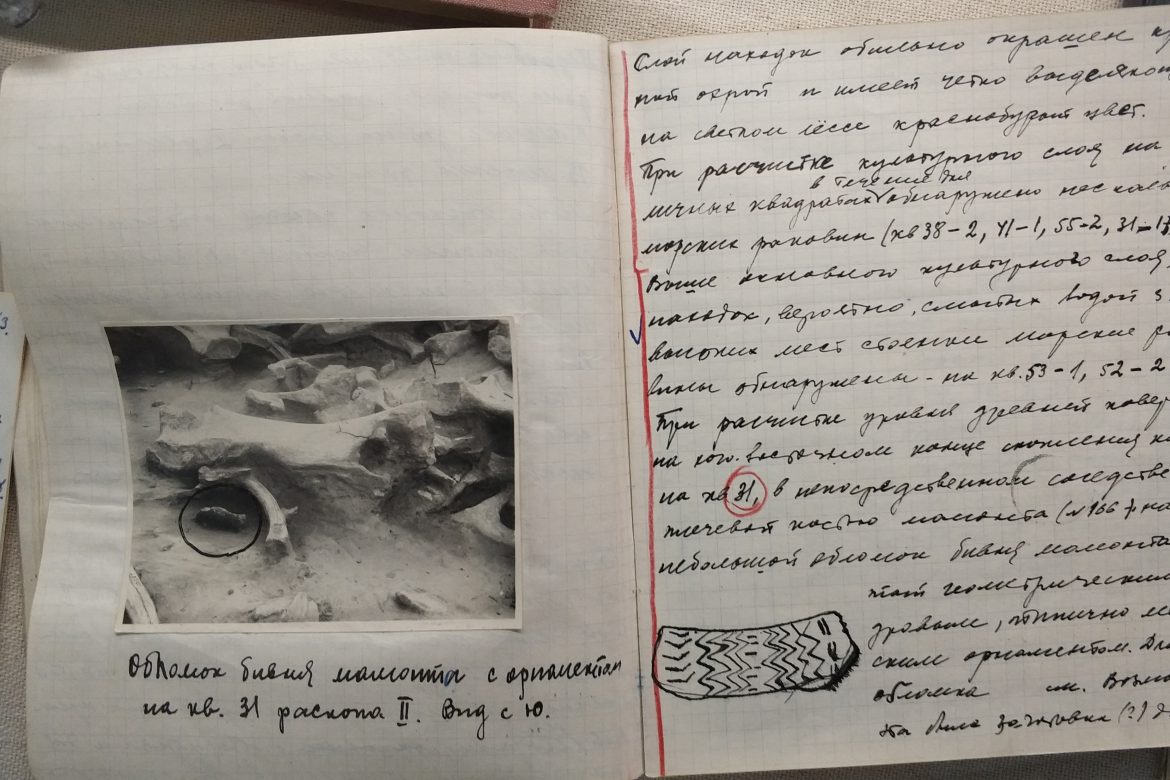 Обломок бивня мамонта с орнаментом
на кв. 31 раскопа II. Вид с Ю.
Слой находок обильно окрашен кр
ной охрой и имеет четко выделяющ
на светлом лёссе краснобурый цвет.
При расчистке культурного слоя на
в течение дня
личных квадратах обнаружено нескол
морских раковин (кв 38-2, 41-1, 55-2, 31-17
Выше основного культурного слоя,
находок, вероятно, смытых водой з
высоких мест стоянки морские ра
вины обнаружены - на кв. 53-1, 52-2
При расчистке уровня древней повер
на юго-восточном конце скопления ко
на кв 31, в непосредственном соседстве
плечевой костью мамонта (№166) на
небольшой обломок бивня мамонта
тый геометрическим
узором, типично ме
ским орнаментом. Дл
обломка см. Возмо
это была заготовка (?) д